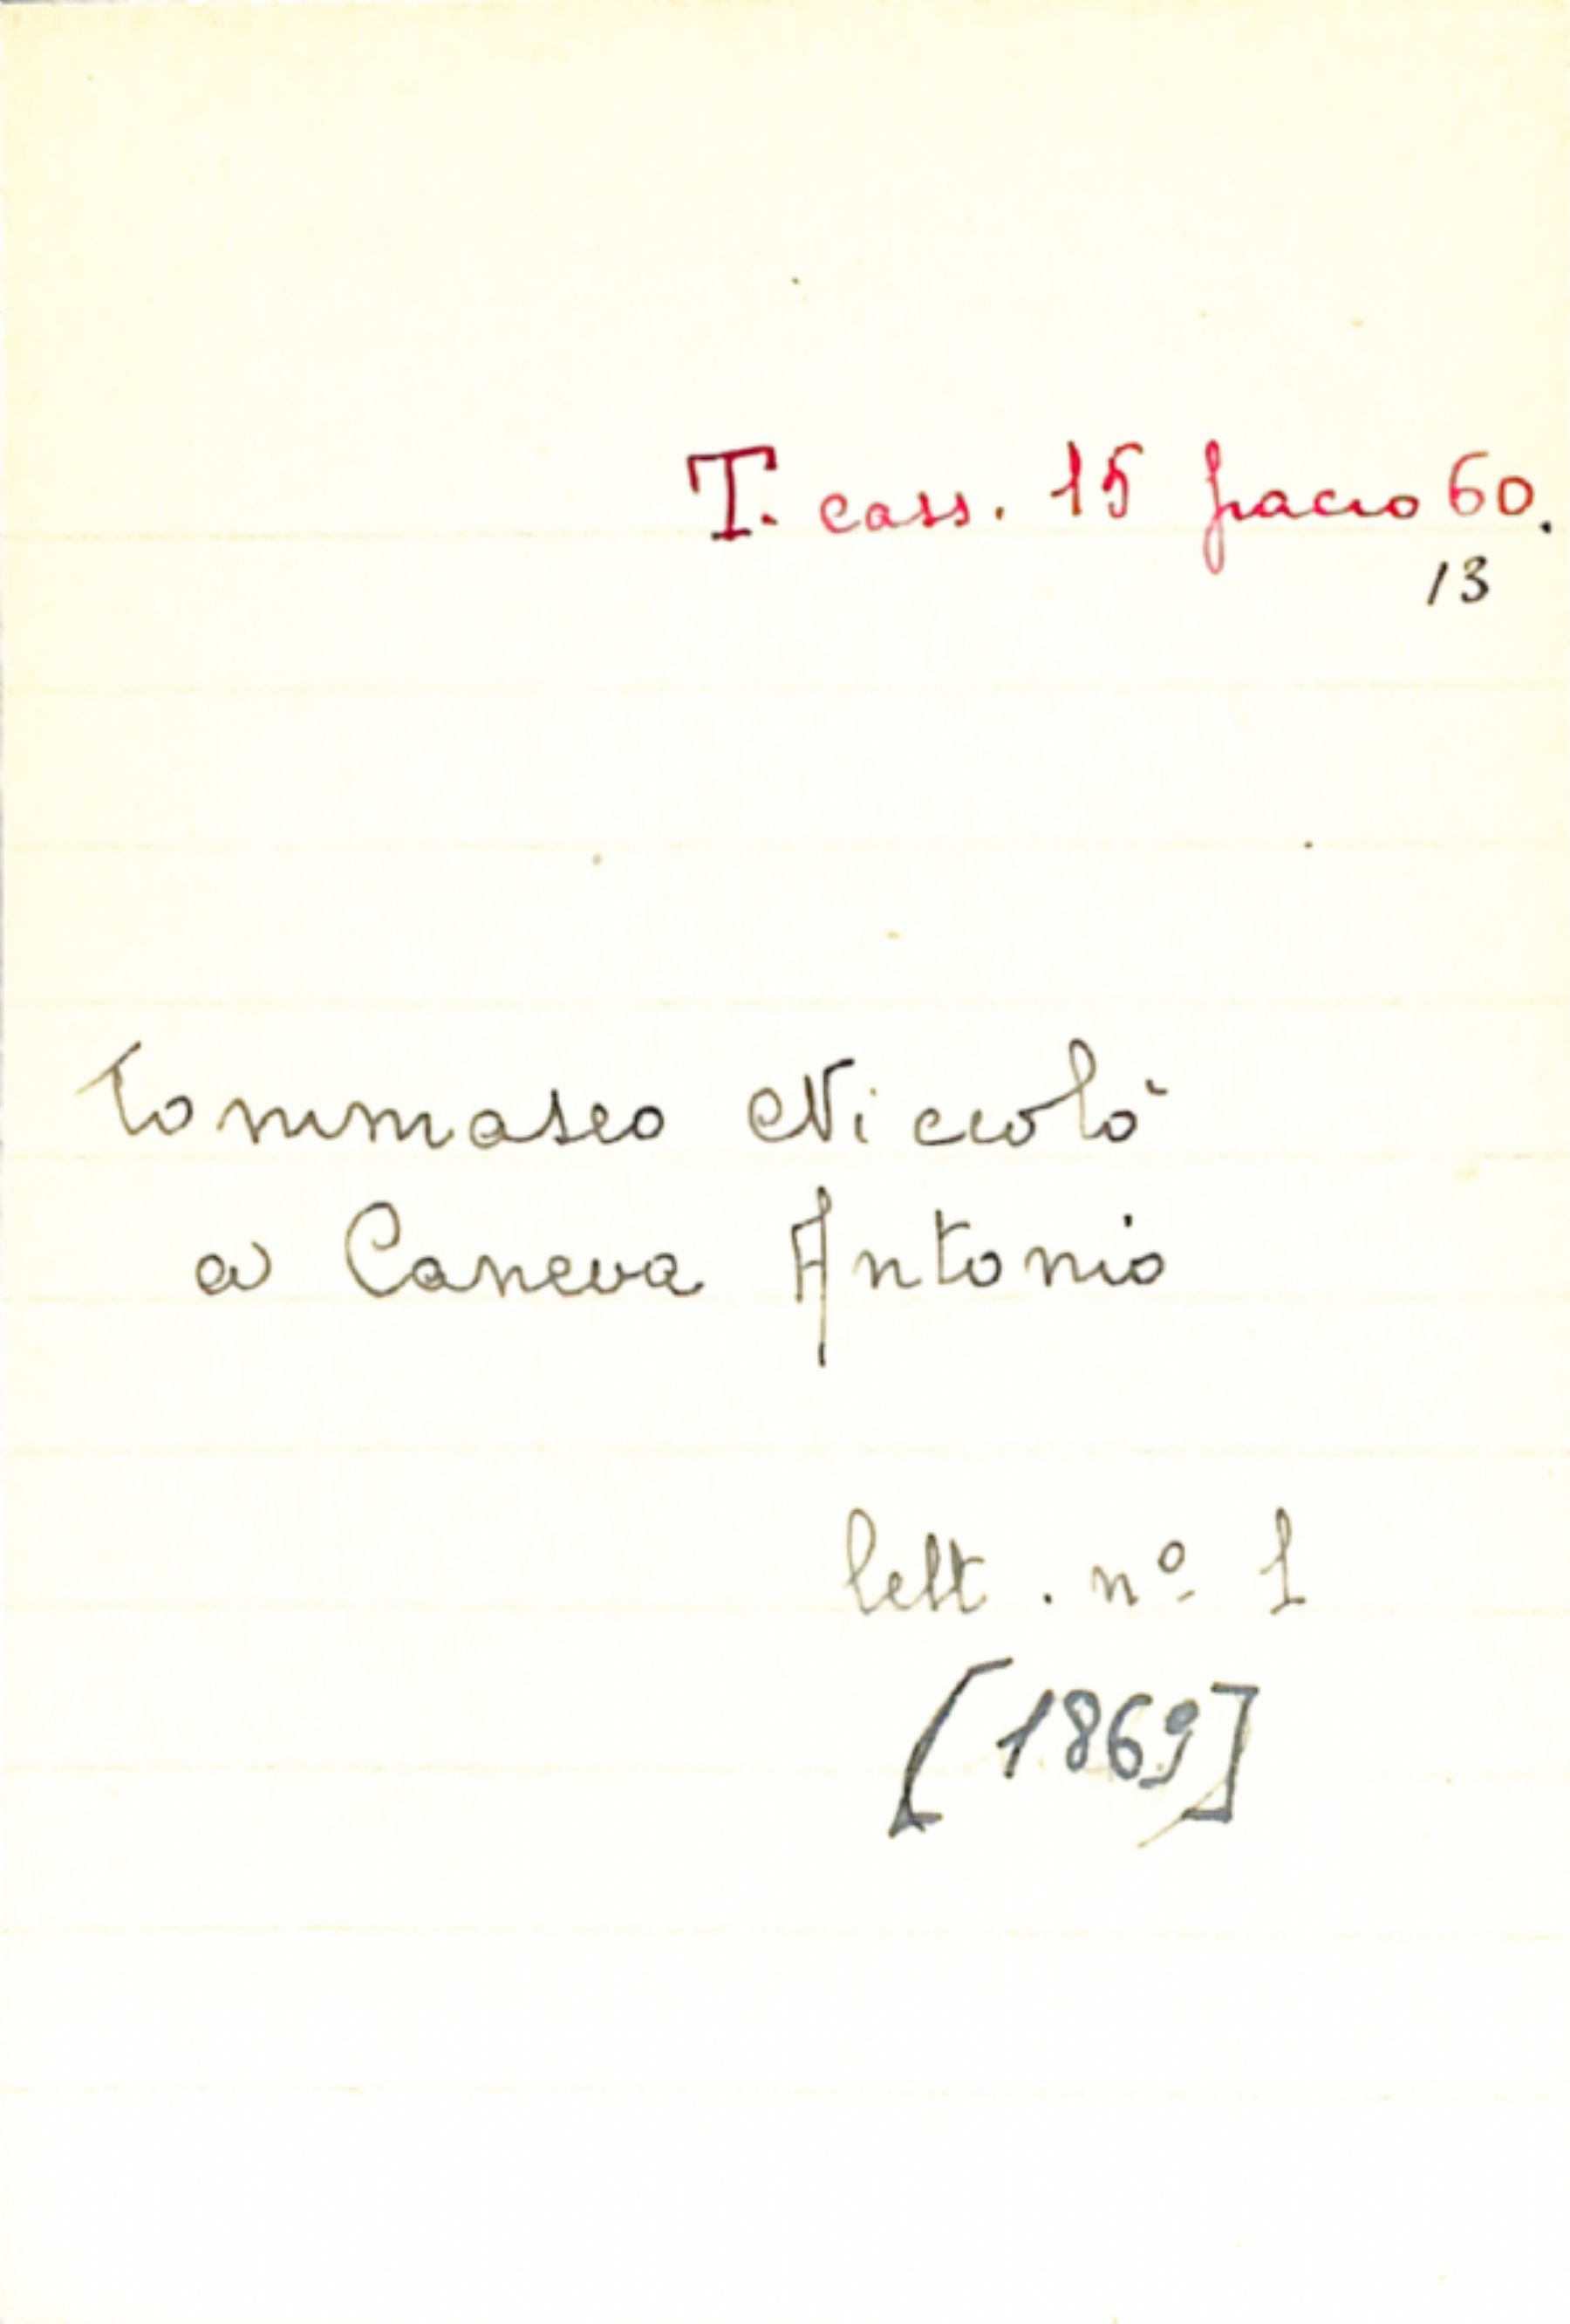 T. cass. 15 pacco 60.
13
Tommaseo Niccolò
a Caneva Antonio
lett. nº 1
[1869]